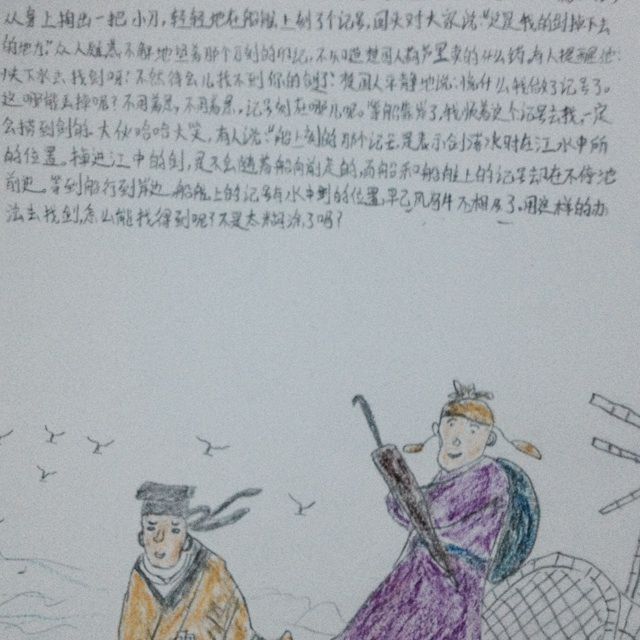 从身上抽出一把小刀，轻轻地在船舷上刻了个记号，回头对大家说："这是我的剑掉下去
的地方"众人疑惑不解地望着那个刀刻的印记，不知道楚国人葫芦里卖的什么药，有人提醒他
快下水去找剑呀！不然待会儿找不到你的剑！楚国人平静地说：慌什么我做了记号了。
这哪能去掉呢？不用着急，不用着急，记号刻在哪儿呢。等船靠岸了，我顺着这个记号去找，一定
会捞到剑的。大伙哈哈大笑，有人说："船上刻的那个记号是表示剑落水时在江水中所
的位置。掉进江中的剑，是不会随着船向前走的，而船和船舷上的记号却在不停地
前进。等到船行到岸边，船舷上的记号与水中剑的位置早已风马牛不相及了，用这样的办
法去找剑怎么能找得到呢？不是太糊涂了吗？